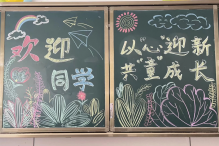 欢迎
同学
以心迎新
共童成长